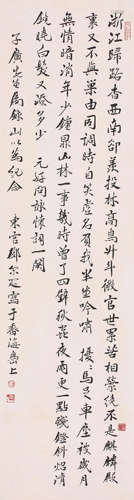 浙江歸路杳西南却羨投林高鳥升斗微官世累苦相縈繞不是麒麟殿
裏又不與巢由同調時自笑虛名負我平生吟嘯 擾〻馬足車塵被歲月
無情暗消年少鐘鼎山林一事幾時曾了四壁秋蟲夜雨更一點殘鐙斜照清
鏡曉白髮又添多少 元好問詠懷詞一闋
子廣先生屬錄以為紀念
東官鄧爾疋寫于香海島上